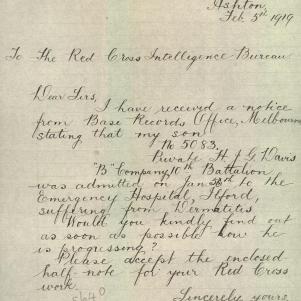 Ashton,
Feb. 5th 1919
To The Red Cross Intelligence Bureau
Dear Sirs,
I have received a notice
from Base Records Office, Melbourne
stating that my son
No 5083,
Private H J G Davis
"B" Company, 10th Battalion
was admitted on Jan 28th to the
Emergency Hospital, Ilford,
suffering from Dermatitis
Would you kindly find out
as soon as possible how he
is progressing?
Please accept the enclosed
half-note for your Red Cross
work.
Sincerely yours